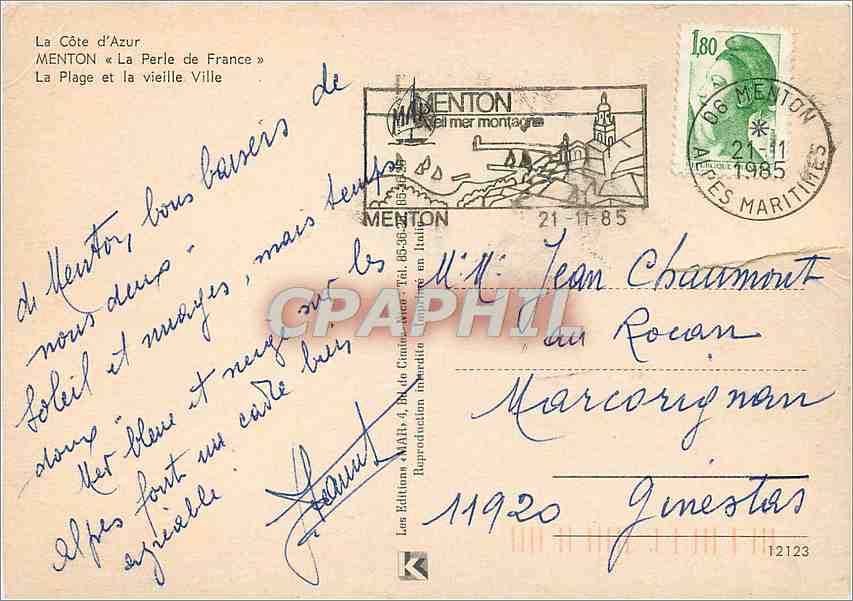 La Côte d'Azur
MENTON « La Perle de France »
La Plage et la vieille Ville
1,80
MENTON
soleil mer montagne
MENTON
21-11-85
06 MENTON
21-11
1985
ALPES MARITIMES
de Menton, bons baisers de
nous deux.
Soleil et nuages, mais temps
doux.
Mer bleue et neige sur les
Alpes font un cadre bien
agréable.
Les Editions «MAR», 4, Bd de Cimiez, Nice - Tél. 85-36-25
Reproduction interdite Imprimé en Italie
CPAPHIL
M. Mme Jean Chaumont
au Rocan
Marcorignan
11920 Ginestas
K
12123